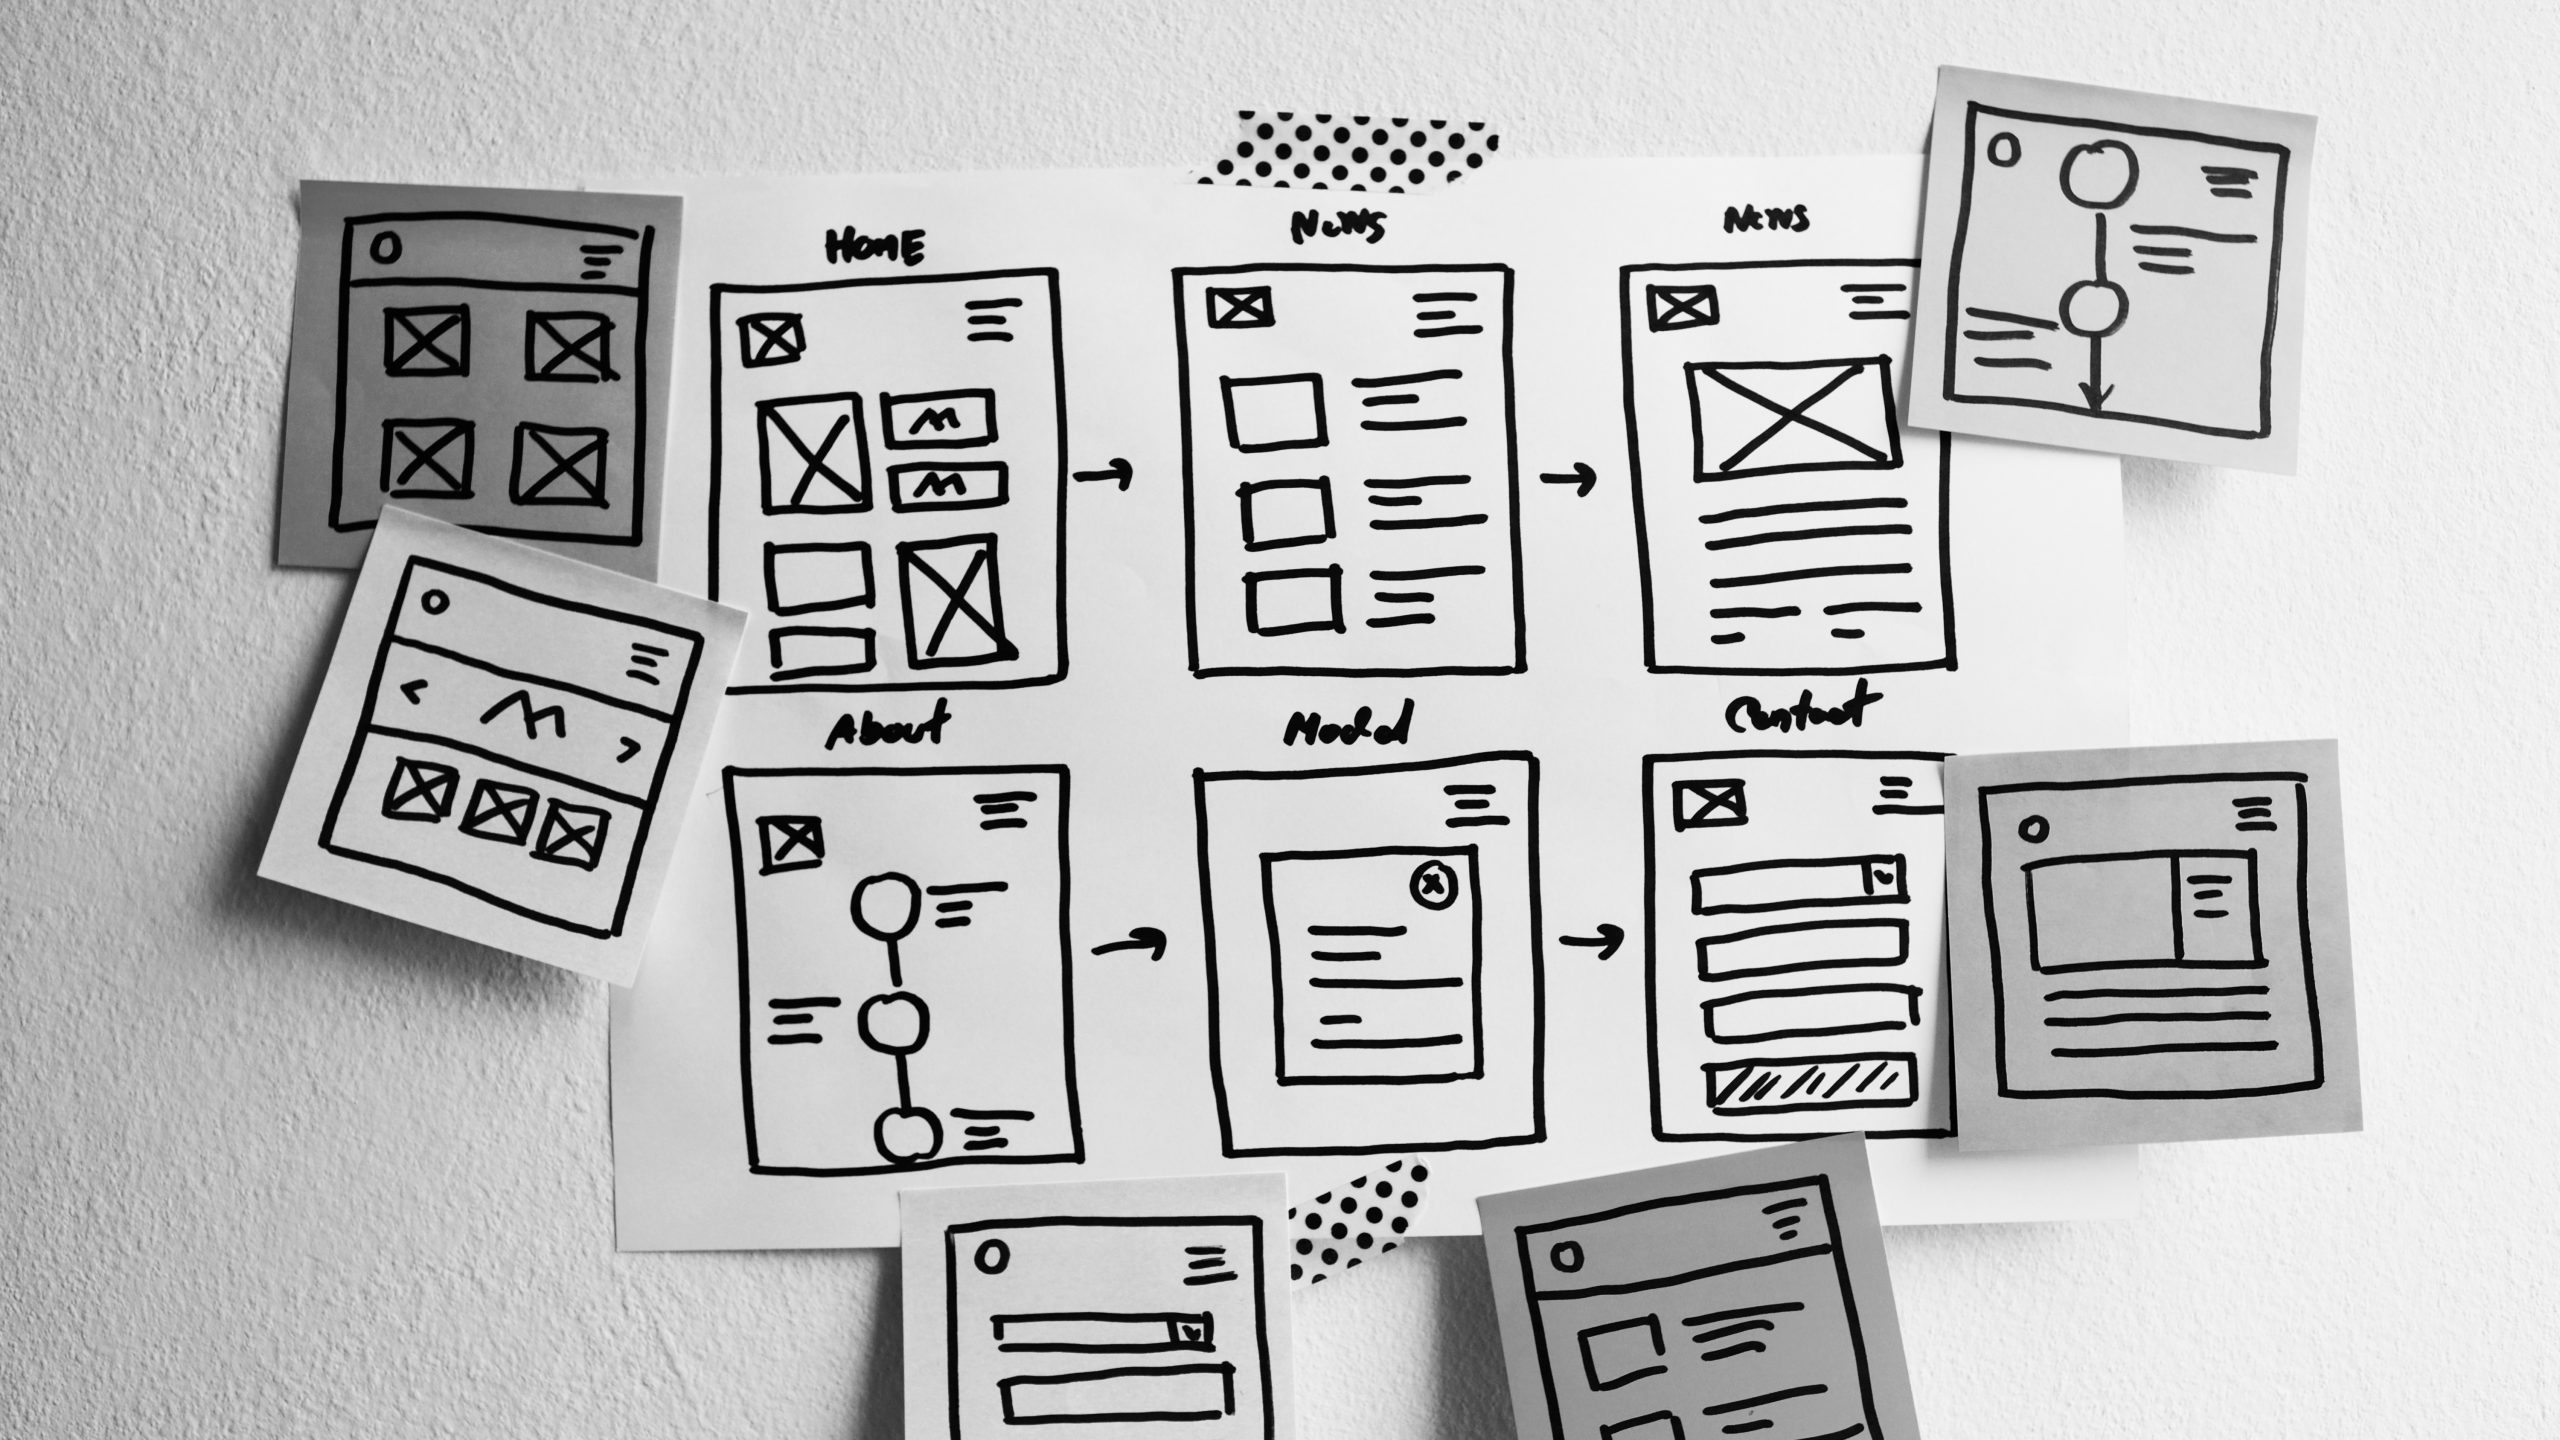 Home
News
News
About
Modal
Contact